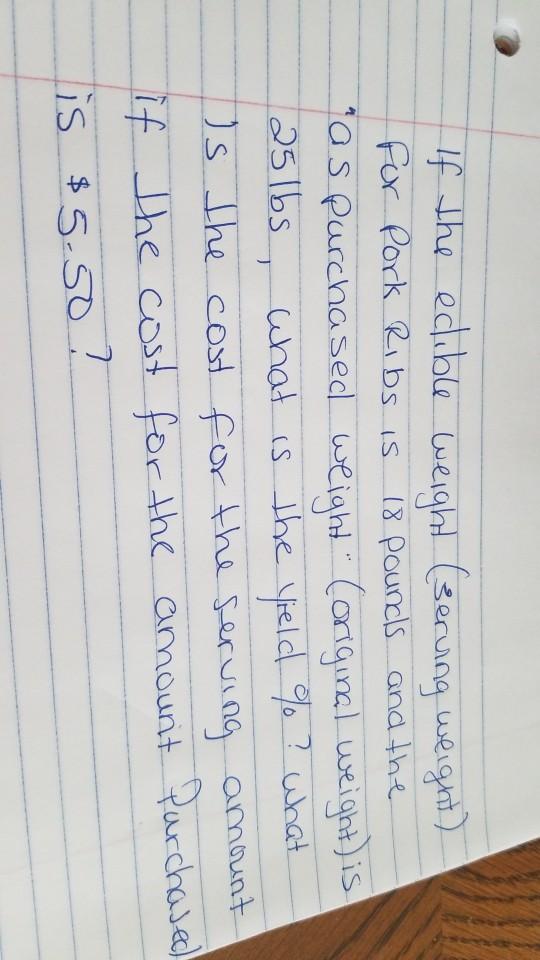 If the edible weight (serving weight)
for Pork Ribs is 18 pounds and the
"as purchased weight" (original weight) is
25lbs, what is the yield %? what
Is the cost for the serving amount
if the cost for the amount Purchased
is $5.50?